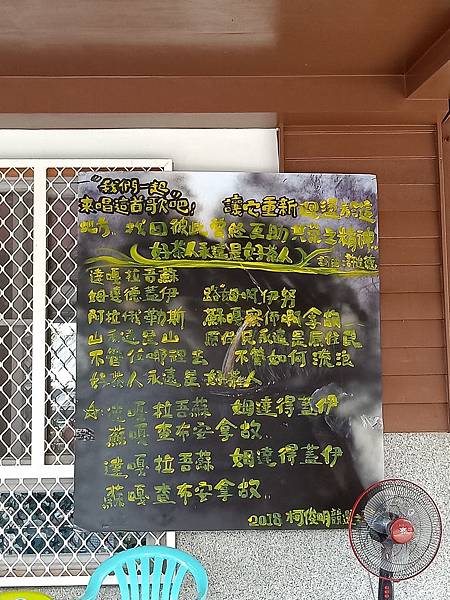 "我們一起
來唱這首歌吧! 讓它重新迴盪於這
地方,找回彼此曾經互助共榮之精神!!
好茶人永遠是好茶人
達嘎拉吾蘇
姆達德蓋伊 路姆啊伊努
阿拉俄勒斯 蘇嘎察佈啊拿故
山永遠是山 原住民永遠是原住民
不管你哪裡去 不管如何流浪
好茶人永遠是好茶人
拉吾蘇 姆達得蓋伊
蘇嘎查布安拿故..
達嘎拉吾蘇 姆達得蓋伊
蘇嘎查布安拿故..
2018 柯俊明